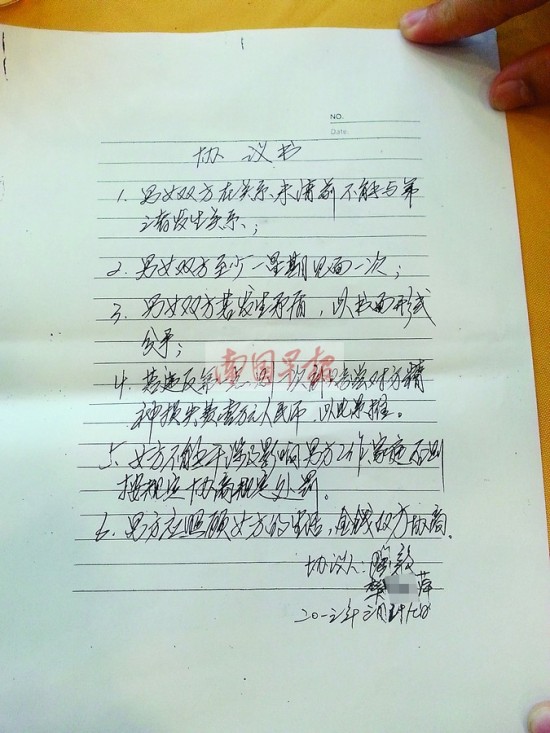 NO.
Date
协议书
1. 男女双方在关系未清前不能与第
三者发生关系;
2. 男女双方至少一星期见面一次;
3. 男女双方若发生矛盾，以书面形式
分手;
南国早报
4. 若违反第 一次 赔偿对方精
神损失费壹万元人民币，以此类推。
5、女方不能干涉及影响男方工作家庭否则
按规定协商规定处罚。
6、男方应照顾女方的生活，金钱双方协商。
协议人: 敦
萍
二0一三年